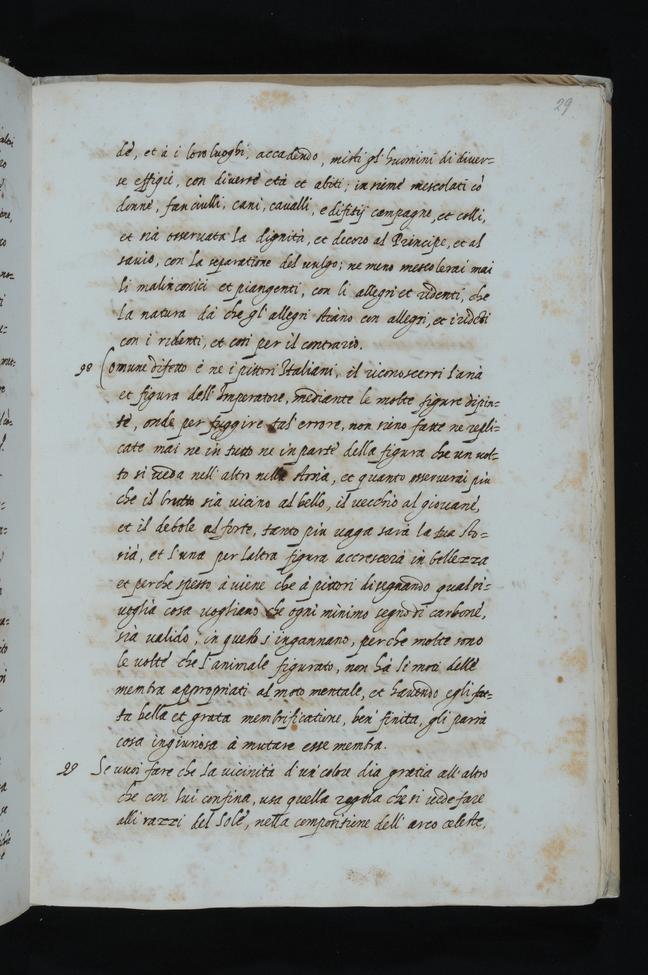 29
de, et à i loro luoghi, accadendo, misti gl' huomini di diver-
se effigie, con diverse età et abiti, insieme mescolati cō
donne, fanciulli, cani, cavalli, edifitij campagne, et colli,
et sia osservata la dignità, et decoro al Principe, et al
savio, con la separatione del vulgo; ne meno mescolerai mai
li malinconici et piangenti, con li allegri et ridenti, che
la natura dà che gl'allegri stiano con allegri, et i ridēti
con i ridenti, et così per il contrario.
98 Comune difetto è ne i pittori Italiani, il riconoscersi l'aria
et figura dell'Imperatore, mediante le molte figure dipin-
te, onde per fuggire tal' errore, non sieno fatte ne repli-
cate mai ne in tutto ne in parte della figura che un vol-
to si veda nell'altro nella storia, et quanto osserverai piu
che il brutto sia vicino al bello, il vecchio al giovane,
et il debole al forte, tanto piu vaga sarà la tua sto-
ria, et l'una per l'altra figura accrescerà in bellezza
et perche spesso aviene che i pittori disegnando qualsi-
voglia cosa vogliano che ogni minimo segno di carbone,
sia valido, in questo s'ingannano, perche molte sono
le volte che l'animale figurato, non hà li moti delle
membra appropriati al moto mentale, et havendo egli fat-
ta bella et grata membrificatione, ben' finita, gli paria
cosa ingiuriosa à mutare esse membra.
99 Se vuoi fare che la vicinità d'un'colore dia gratia all'altro
che con lui confina, usa quella regola che si vede fare
alli razzi del Sole, nella compositione dell' arco celeste,